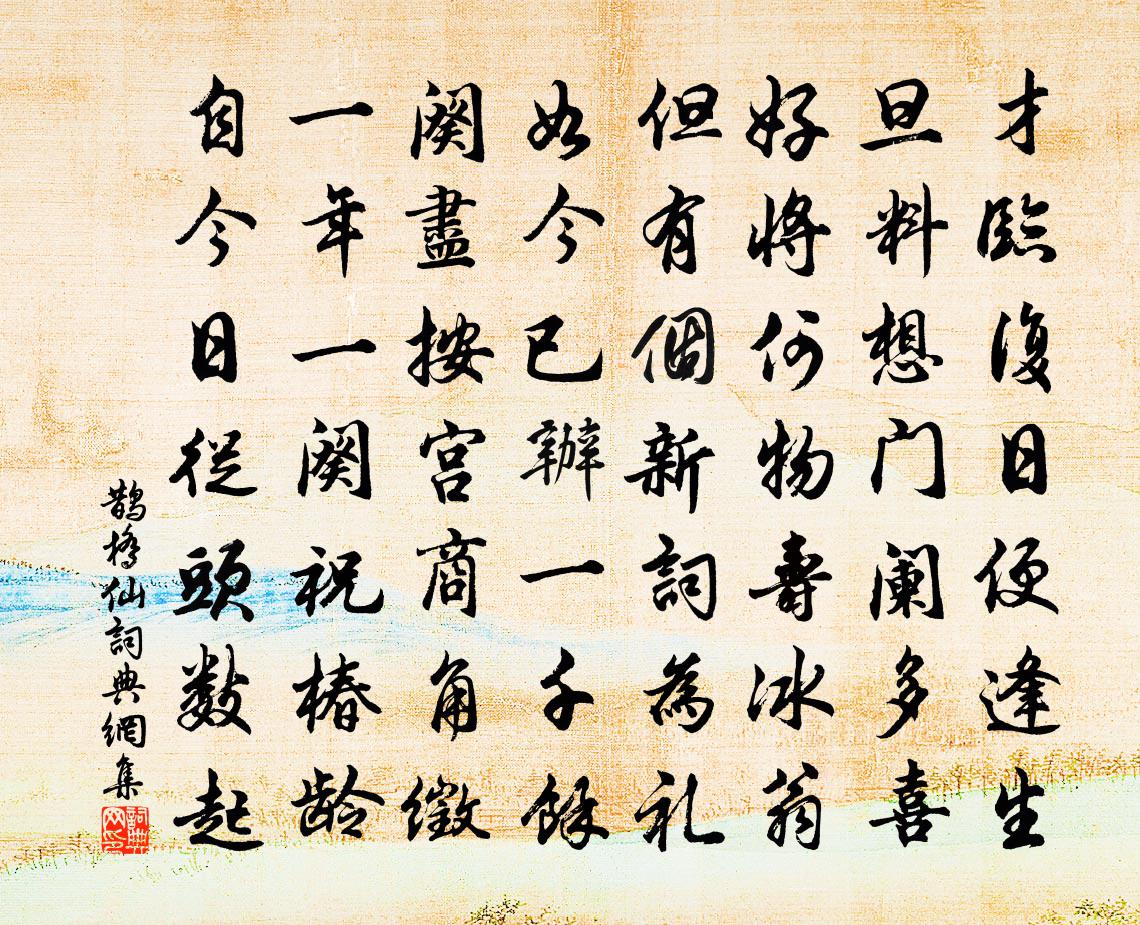 才臨復日便逢生
旦料想门阑多喜
好將何物壽冰翁
但有個新詞為礼
如今已辦一千餘
闋盡按宫商角徵
一年一闋祝椿龄
自今日從頭數起
鹊橋仙詞典網集
詞典